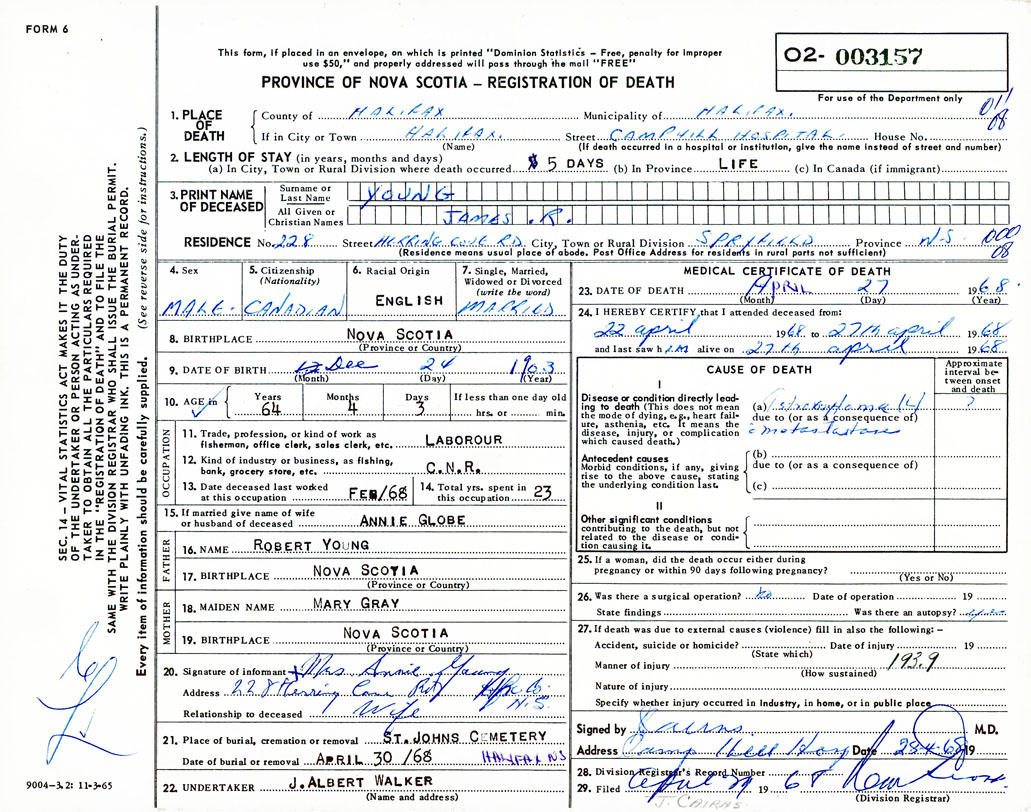 FORM 6
This form, if placed in an envelope, on which is printed "Dominion Statistics – Free, penalty for improper
use $50," and properly addressed will pass through the mail "FREE"
PROVINCE OF NOVA SCOTIA – REGISTRATION OF DEATH
02- 003157
For use of the Department only
011
08
1. PLACE OF DEATH
County of HALIFAX Municipality of HALIFAX.
If in City or Town HALIFAX. Street CAMPHILL HOSPITAL. House No.
(Name) (If death occurred in a hospital or institution, give the name instead of street and number)
2. LENGTH OF STAY (in years, months and days)
(a) In City, Town or Rural Division where death occurred 5 DAYS (b) In Province LIFE (c) In Canada (if immigrant)
3. PRINT NAME OF DECEASED
Surname or Last Name YOUNG
All Given or Christian Names JAMES .R.
RESIDENCE No. 228 Street HERRING COVE RD. City, Town or Rural Division SPRYFIELD Province N.S. 000
(Residence means usual place of abode. Post Office Address for residents in rural parts not sufficient) 08
4. Sex
MALE.
5. Citizenship
(Nationality)
CANADIAN
6. Racial Origin
ENGLISH
7. Single, Married,
Widowed or Divorced
(write the word)
MARRIED
8. BIRTHPLACE NOVA SCOTIA
(Province or Country)
9. DATE OF BIRTH Dec 24 1903
(Month) (Day) (Year)
10. AGE in
Years Months Days If less than one day old
64 4 3 hrs. or min.
OCCUPATION
11. Trade, profession, or kind of work as
fisherman, office clerk, sales clerk, etc. LABOROUR
12. Kind of industry or business, as fishing,
bank, grocery store, etc. C.N.R.
13. Date deceased last worked
at this occupation FEB/68
14. Total yrs. spent in
this occupation 23
15. If married give name of wife
or husband of deceased ANNIE GLOBE
FATHER
16. NAME ROBERT YOUNG
17. BIRTHPLACE NOVA SCOTIA
(Province or Country)
MOTHER
18. MAIDEN NAME MARY GRAY
19. BIRTHPLACE NOVA SCOTIA
(Province or Country)
20. Signature of informant Mrs. Annie Young
Address 228 Herring Cove Rd Hfx Co.
N.S.
Relationship to deceased Wife
21. Place of burial, cremation or removal ST. JOHNS CEMETERY
Date of burial or removal APRIL 30 /68 HALIFAX NS
22. UNDERTAKER J. ALBERT WALKER
(Name and address)
MEDICAL CERTIFICATE OF DEATH
23. DATE OF DEATH APRIL 27 1968
(Month) (Day) (Year)
24. I HEREBY CERTIFY that I attended deceased from:
22 april 1968 to 27th april 1968
and last saw him alive on 27th april 1968
CAUSE OF DEATH
Approximate
interval between
onset
and death
I
Disease or condition directly leading
to death (This does not mean
the mode of dying, e.g., heart failure,
asthenia, etc. It means the
disease, injury, or complication
which caused death.)
(a) ?
due to (or as a consequence of)
Antecedent causes
Morbid conditions, if any, giving
rise to the above cause, stating
the underlying condition last.
(b)
due to (or as a consequence of)
(c)
II
Other significant conditions
contributing to the death, but not
related to the disease or condition
causing it.
25. If a woman, did the death occur either during
pregnancy or within 90 days following pregnancy?
(Yes or No)
26. Was there a surgical operation? No Date of operation 19
State findings Was there an autopsy?
27. If death was due to external causes (violence) fill in also the following: –
Accident, suicide or homicide? Date of injury 19
(State which)
Manner of injury 193.9
(How sustained)
Nature of injury
Specify whether injury occurred in Industry, in home, or in public place
Signed by Cairns M.D.
Address Camp Hill Hosp Date 28.4.68 19
28. Division Registrar's Record Number
29. Filed April 29 1968
(Division Registrar)
J. CAIRNS
SEC. 14 – VITAL STATISTICS ACT MAKES IT THE DUTY
OF THE UNDERTAKER OR PERSON ACTING AS UNDERTAKER
TO OBTAIN ALL THE PARTICULARS REQUIRED
IN THE "REGISTRATION OF DEATH" AND TO FILE THE
SAME WITH THE DIVISION REGISTRAR WHO SHALL ISSUE THE BURIAL PERMIT.
WRITE PLAINLY WITH UNFADING INK. THIS IS A PERMANENT RECORD.
Every item of information should be carefully supplied. (See reverse side for instructions.)
9004-3.2: 11-3-65